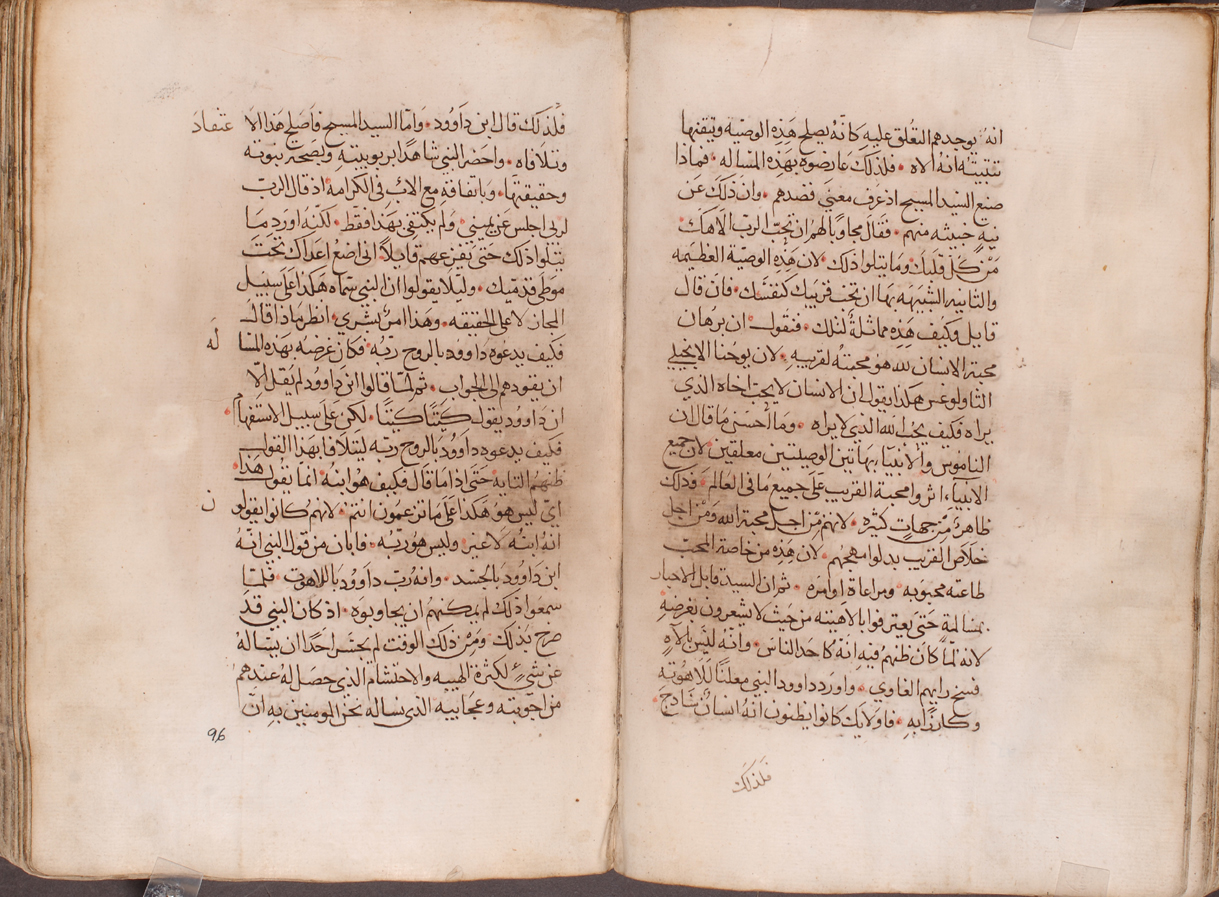 انه يوجدهم التعلق عليه كانه يصلح هذه الوصيه ويتقنها
تثبيته انه الاه • فلذلك عارضوه بهذه المساله • فماذا
صنع السيد المسيح اذ عرف معني قصدهم • وان ذلك عن
نية خبيثه منهم • فقال مجاوبا لهم ان تحب الرب الاهك
من كل قلبك وما يتلوا ذلك • لان هذه الوصية العظيمه
والثانيه الشبيهه بها ان تحب قريبك كنفسك • فان قال
قايل وكيف هذه مماثلة لتلك • فنقول ان برهان
محبة الانسان لله هو محبته لقريبه • لان يوحنا الانجيلي
التاولوغس هكذا يقول ان الانسان لا يحب اخاه الذي
يراه فكيف يحب الله الذي لا يراه • وما احسن ما قال ان
الناموس والانبيا بهاتين الوصيتين معلقين لان جميع
الانبياء اثروا محبة القريب على جميع ما في العالم • وذلك
ظاهر من جهات كثيره • لانهم من اجل محبة الله ومن اجل
خلاص القريب بدلوا مهجهم • لان هذه من خاصة المحب
طاعته محبوبه ومراعاة اوامره • ثم ان السيد قابل الاحبار
بمسالة حتى يعترفوا بالاهيته من حيث لا يشعرون بغرضه
لانه لما كان ظنهم فيه انه كاحد الناس • وانه ليس بالاه
فسخ رايهم الغاوي • واورد داوود النبي معلنا للاهوته
وكارزا به • فاولايك كانوا يظنون انه انسان سادج •
فلذلك
فلذلك قال ابن داوود • واما السيد المسيح فاصلح هذا الا عتقاد
وتلافاه • واحضر النبي شاهدا بربوبيته وبصحة بنوته
وحقيقتها • وباتفاقه مع الاب في الكرامه اذ قال الرب
لربي اجلس عن يميني • ولم يكتفي بهذا فقط • لكنه اورد ما
يتلوا ذلك حتى تفزعهم قايلا الى اضع اعداك تحت
موطى قدميك • وليلا يقولوا ان النبي سماه هكذا على سبيل
المجاز لا على الحقيقه • وهذا امر بشري • انظر ماذا قال
فكيف يدعوه داوود بالروح ربه • فكان غرضه بهذه المسا له
ان يقودهم الى الجواب • ثم لما قالوا ابن داوود لم يقل الا
ان داوود يقول كيتا كيتا • لكن على سبيل الاستفهام •
فكيف يدعوه داوود بالروح ربه ليتلافا بهذا القول
ظنهم الثانيه حتى اذ اما قال فكيف هو ابنه • انما يقول هذا •
اي ليس هو هكذا على ما تزعمون انتم • لانهم كانوا يقولو ن
انه ابنه لا غير وليس هو ربه • فابان من قول النبي انه
ابن داوود بالجسد • وانه رب داوود باللاهوت • فلما
سمعوا ذلك لم يمكنهم ان يجاوبوه • اذ كان النبي قد
صرح بذلك ومن ذلك الوقت لم يجسر احدا ان يساله
عن شيء لكثرة الهيبه والاحتشام الذي حصل له عندهم
من اجوبته وعجايبه الذي نساله نحن المومنين به ان
96